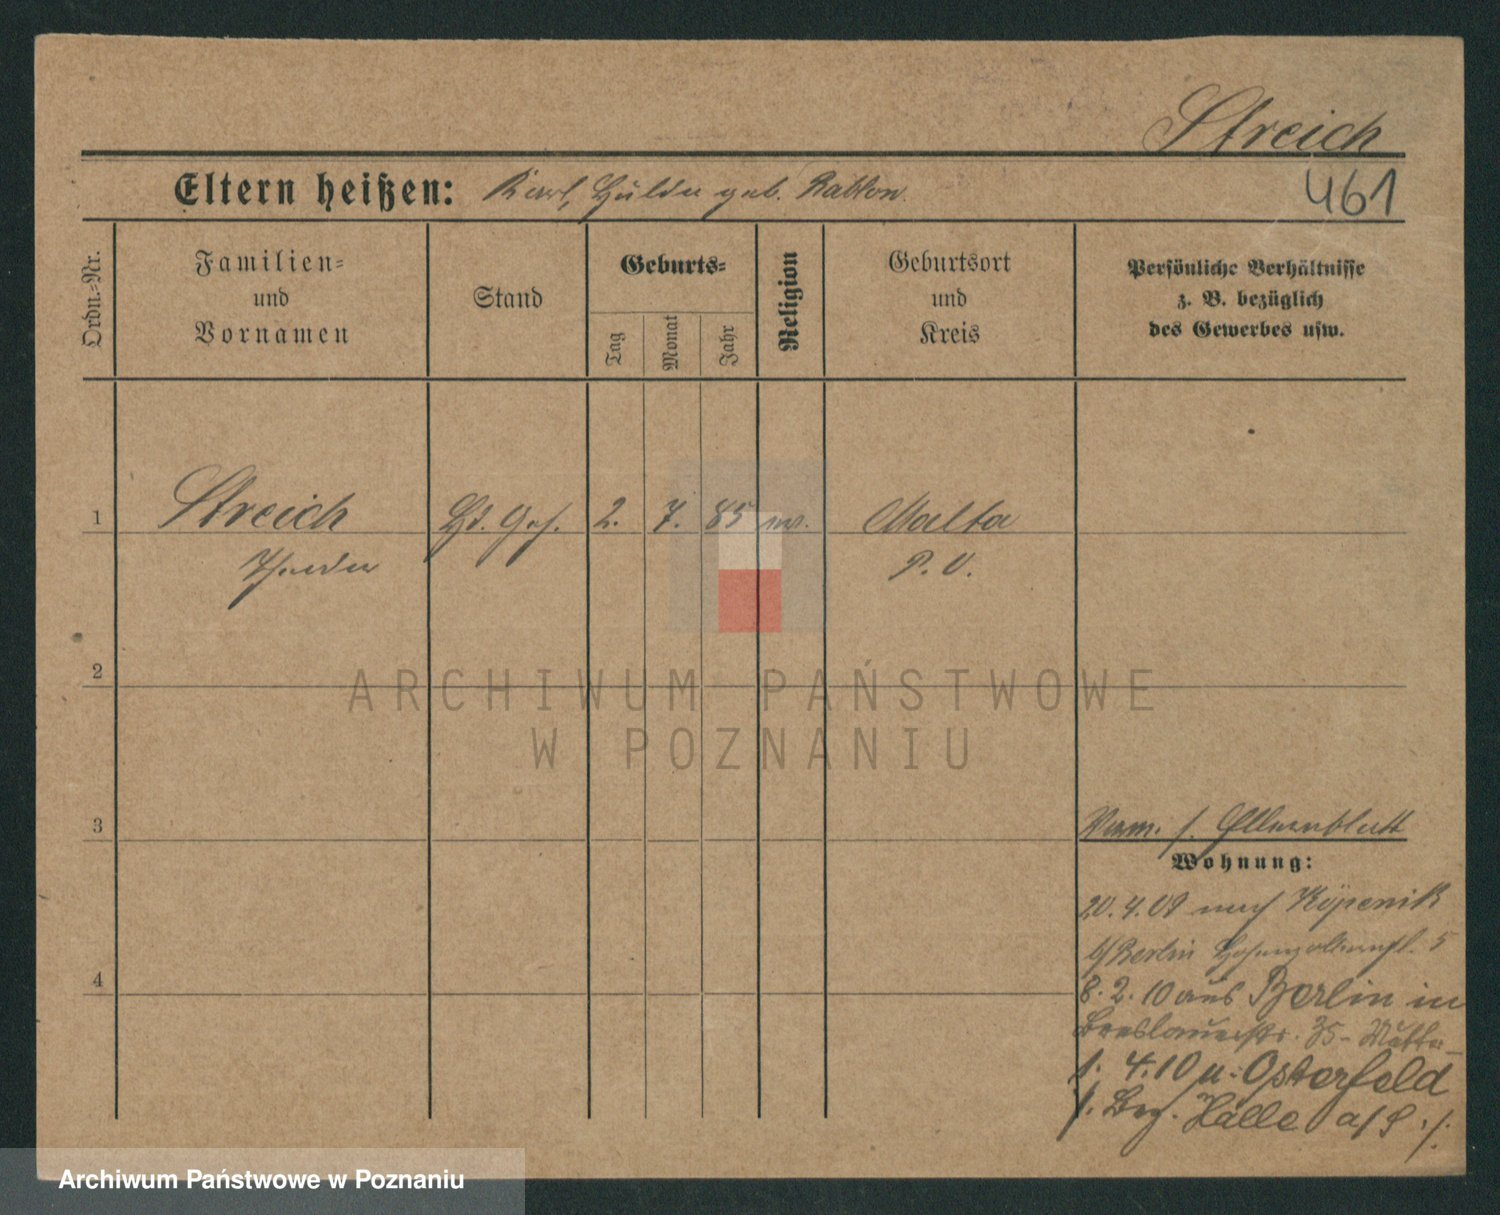 Streich
Eltern heißen: Karl, Hulda geb.
461
Ordn.-Nr.
Familien-
und
Vornamen
Stand
Geburts-
Tag
Monat
Jahr
Religion
Geburtsort
und
Kreis
Persönliche Verhältnisse
z. B. bezüglich
des Gewerbes usw.
1
Streich
2. 7. 85
Malta
P. O.
2
ARCHIWUM PAŃSTWOWE
W POZNANIU
3
Verm. s. Elternblatt
Wohnung:
20.4.09 nach Köpenik
b/Berlin Hohenzollernstr. 5
8. 2. 10 aus Berlin in
4
Breslauerstr. 35 - Mutter -
1. 4. 10 n. Osterfeld
Bez. Halle a/S ./.
Archiwum Państwowe w Poznaniu